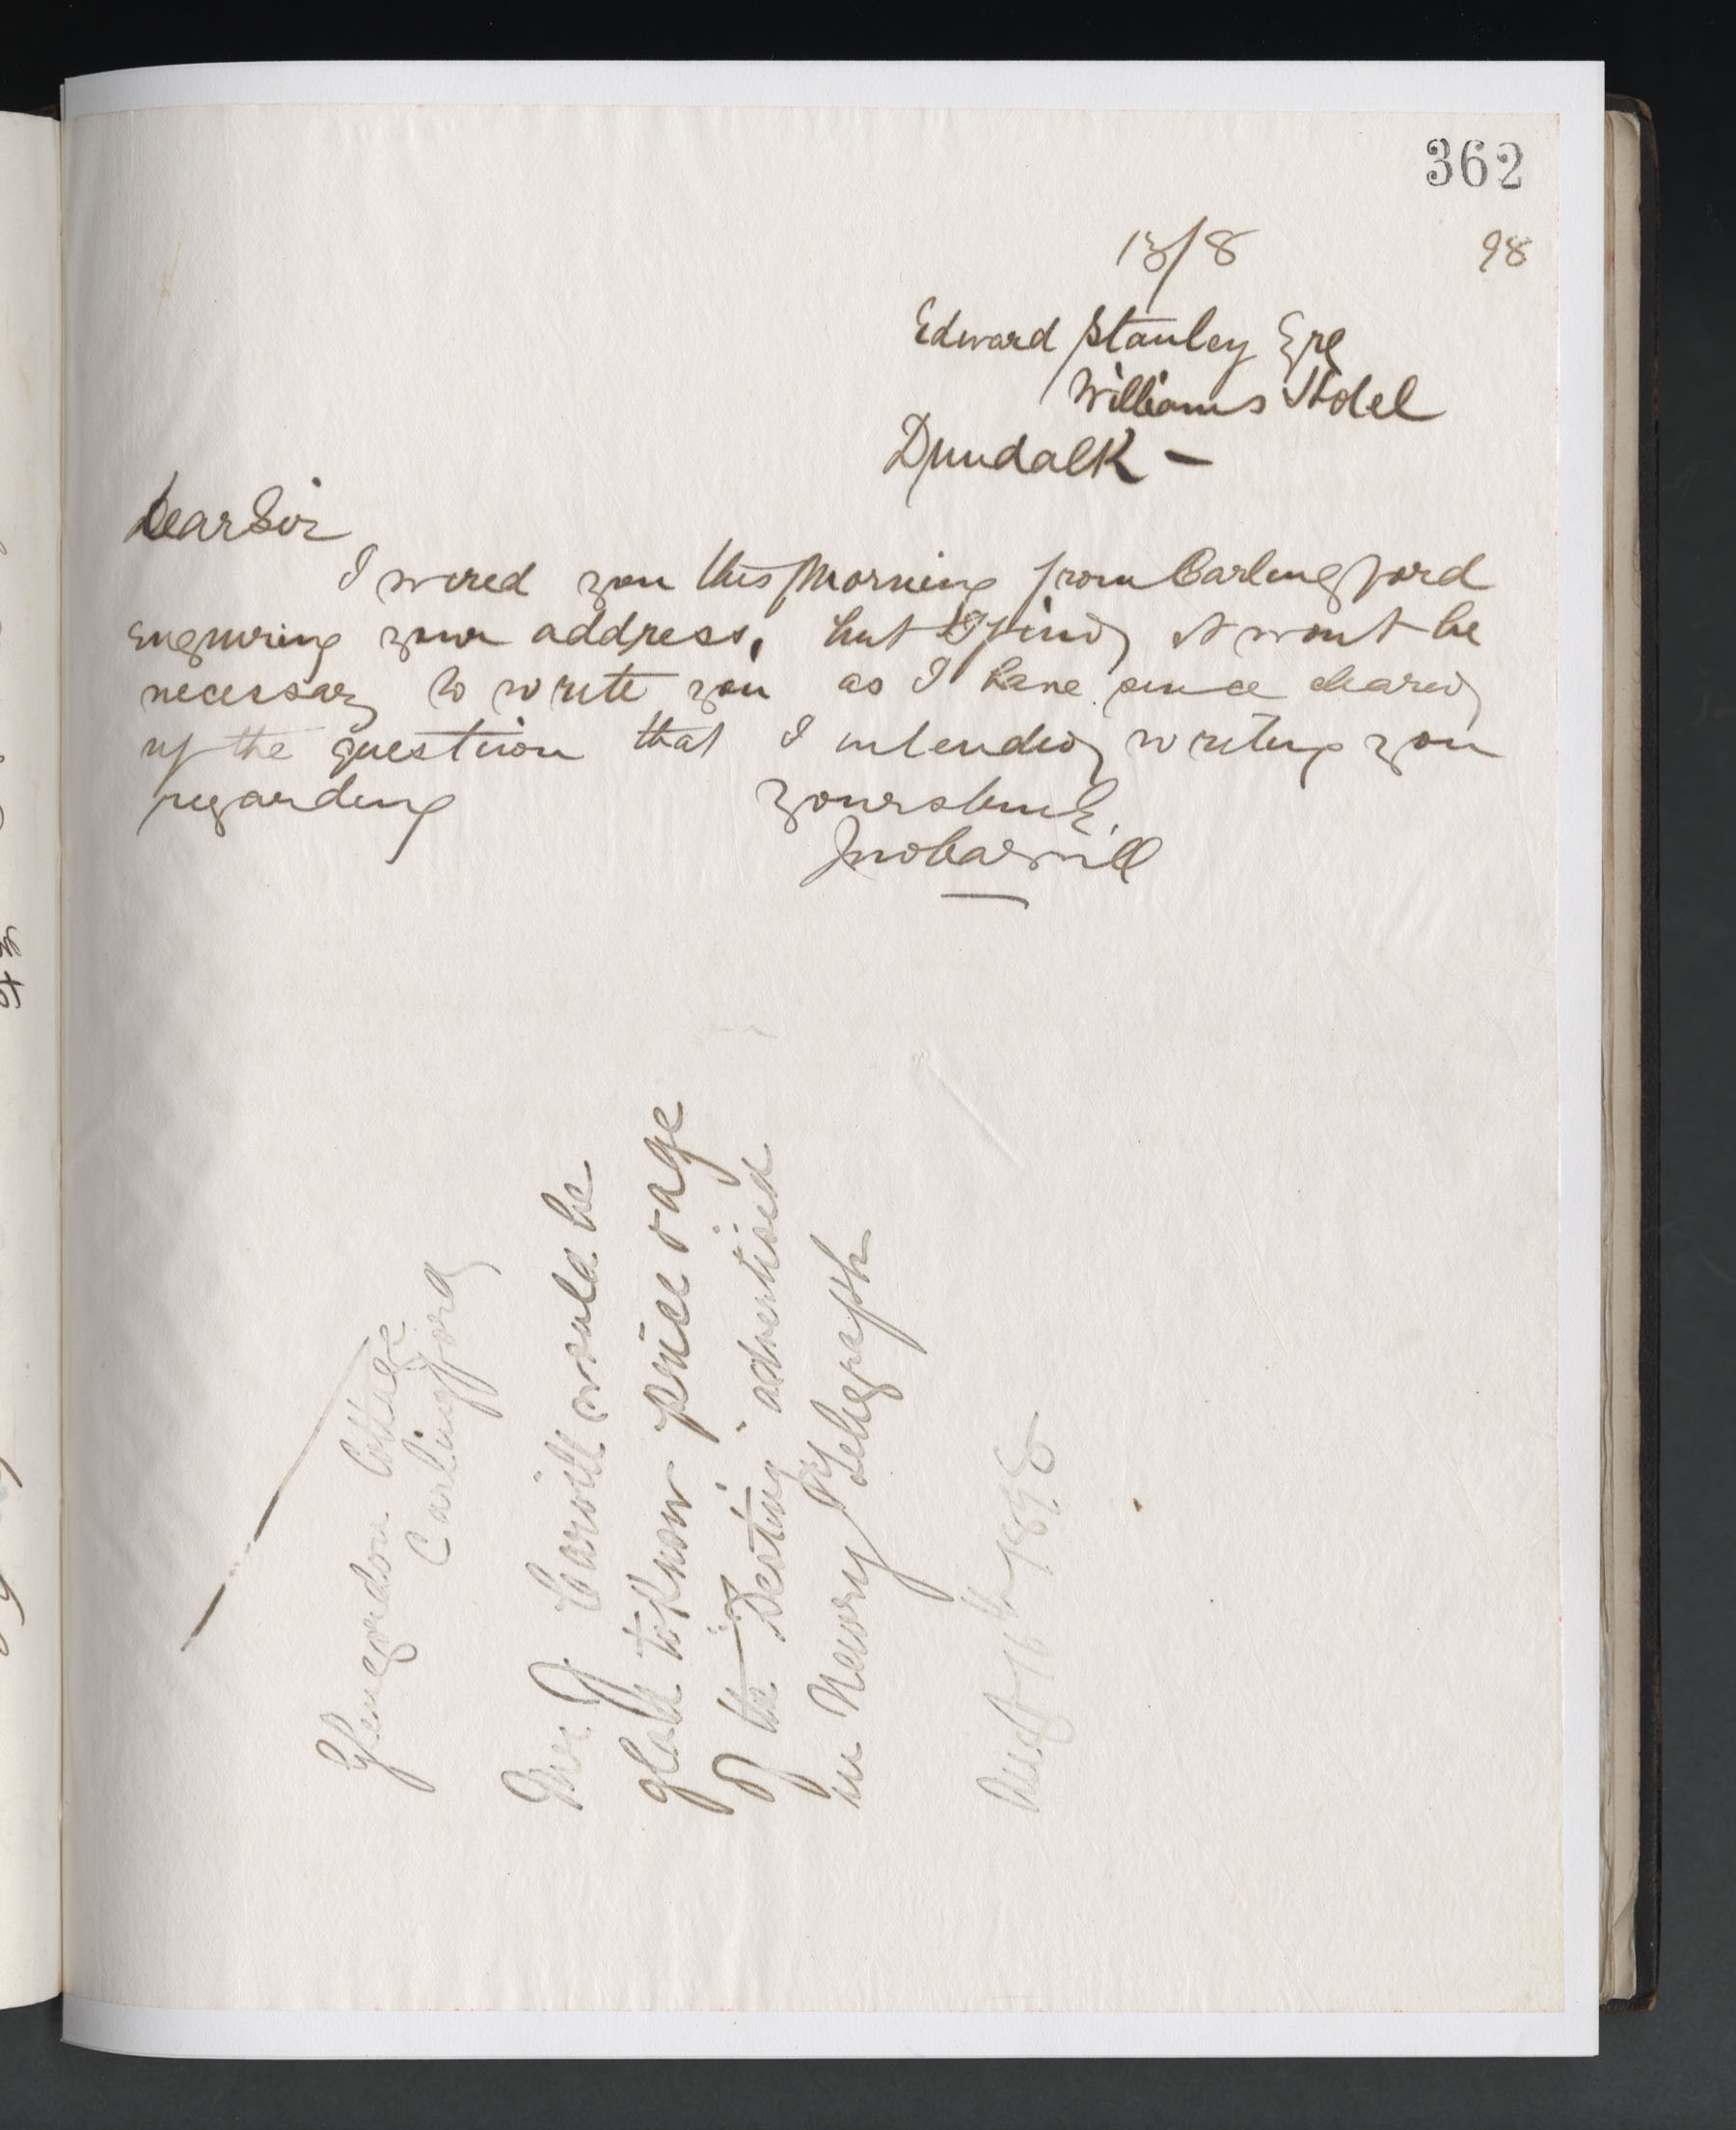 362
13/8 98
Edward Stanley Esq
Williams Hotel
Dundalk -
Dear Sir
I wired you this morning from Carlingford
enquiring your address, but I find it wont be
necessary to write you as I have since cleared
up the question that I intended writing you
regarding Yours truly
Jno Carvill
Glengordon Cottage
Carlingford
Mr J. Carvill would be
glad to know price & age
of the advertised
in Newry Telegraph
Augt 16th 1898